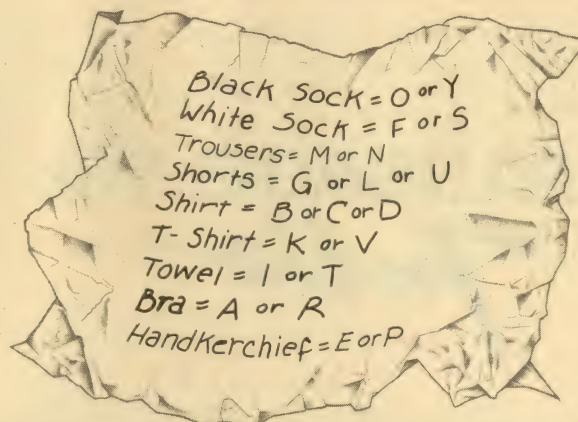 Black Sock = O or Y
White Sock = F or S
Trousers = M or N
Shorts = G or L or U
Shirt = B or C or D
T-Shirt = K or V
Towel = I or T
Bra = A or R
Handkerchief = E or P